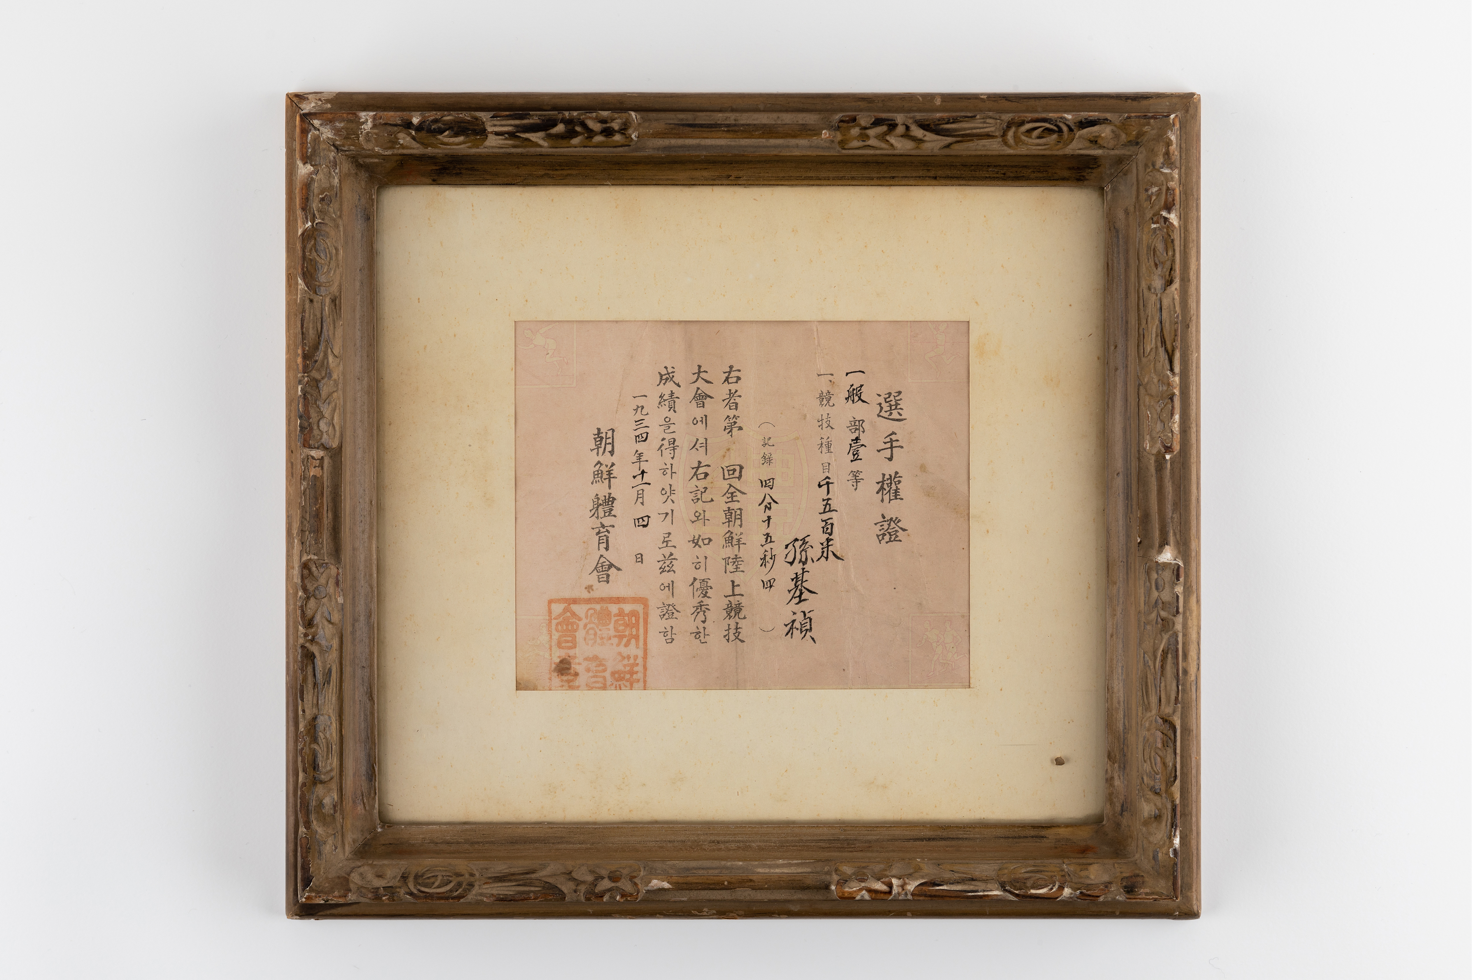 選手權證
一般部壹等
一、競技種目千五百米
孫基禎
(記錄 四分十五秒四 )
右者第 回全朝鮮陸上競技
大會에셔右記와如히優秀한
成績을得하얏기로玆에證함
一九三四年十一月四日
朝鮮體育會
朝鮮
體育
會